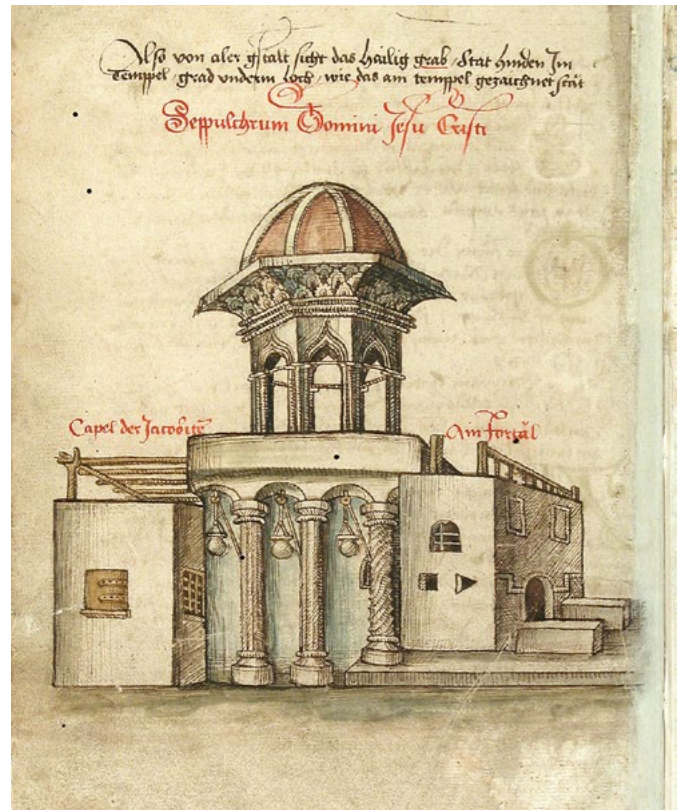 Also von aler gstalt sicht das hailig grab, stat hinden Im
Temppel, grad vnderm loch, wie das am temppel gezaichnet stat
Seppulchrum Domini Jesu Cristi
Capel der Jacobite
Ain Portal